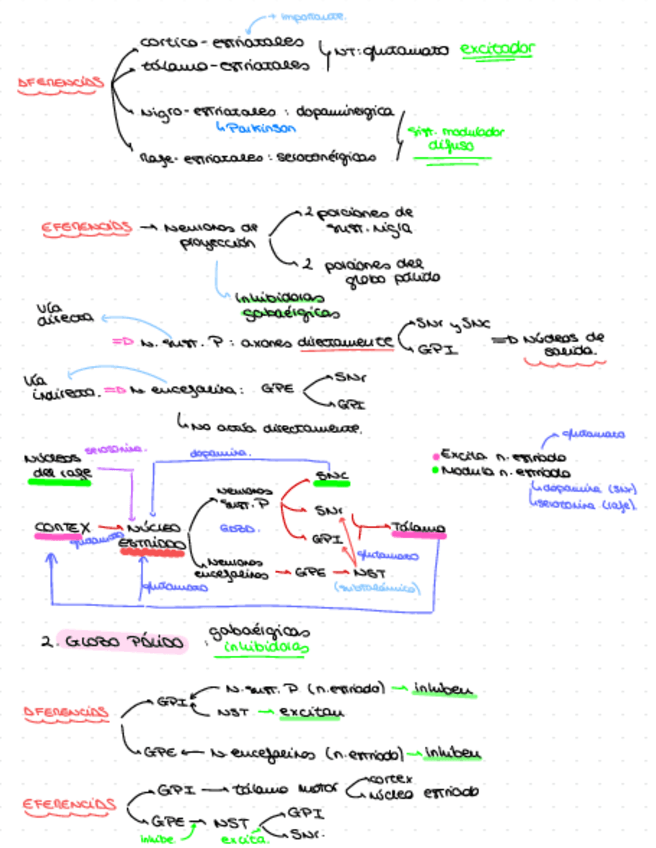 importante.
cortico-estriatales
tálamo-estriatales
NT: glutamato excitador
AFERENCIAS
nigro-estriatales: dopaminergica
Parkinson
Rafe-estriatales: serotonérgicas
sist. modulador
difuso
EFERENCIAS → Neuronas de
proyección
2 porciones de
sust. nigra
2 porciones del
globo pálido
inhibidoras
gabaérgicas
Vía
directa
⇒ N. sust. P: axones directamente
SNr y SNC
GPI
⇒ Núcleos de
salida.
Vía
indirecta. ⇒ N encefalina: GPE
SNr
GPI
No actúa directamente.
Núcleos
del rafe
serotonina.
dopamina.
glutamato
Excita n. estriado
Modula n. estriado
dopamina (SNr)
serotonina (rafe).
CORTEX → NÚCLEO
ESTRIADO
glutamato
Neuronas
sust. P
GABA.
SNC
SNr
GPI
Tálamo
glutamato
Neuronas
encefalinas → GPE → NST
(subtalámico)
glutamato
2. GLOBO PÁLIDO : gabaérgicas
inhibidoras
AFERENCIAS
GPI
N. sust. P (n. estriado) → inhiben
NST → excitan
GPE ← N. encefalinas (n. estriado) → inhiben
EFERENCIAS
GPI → tálamo motor
cortex
núcleo estriado
GPE → NST
GPI
SNr.
inhibe.
excita.